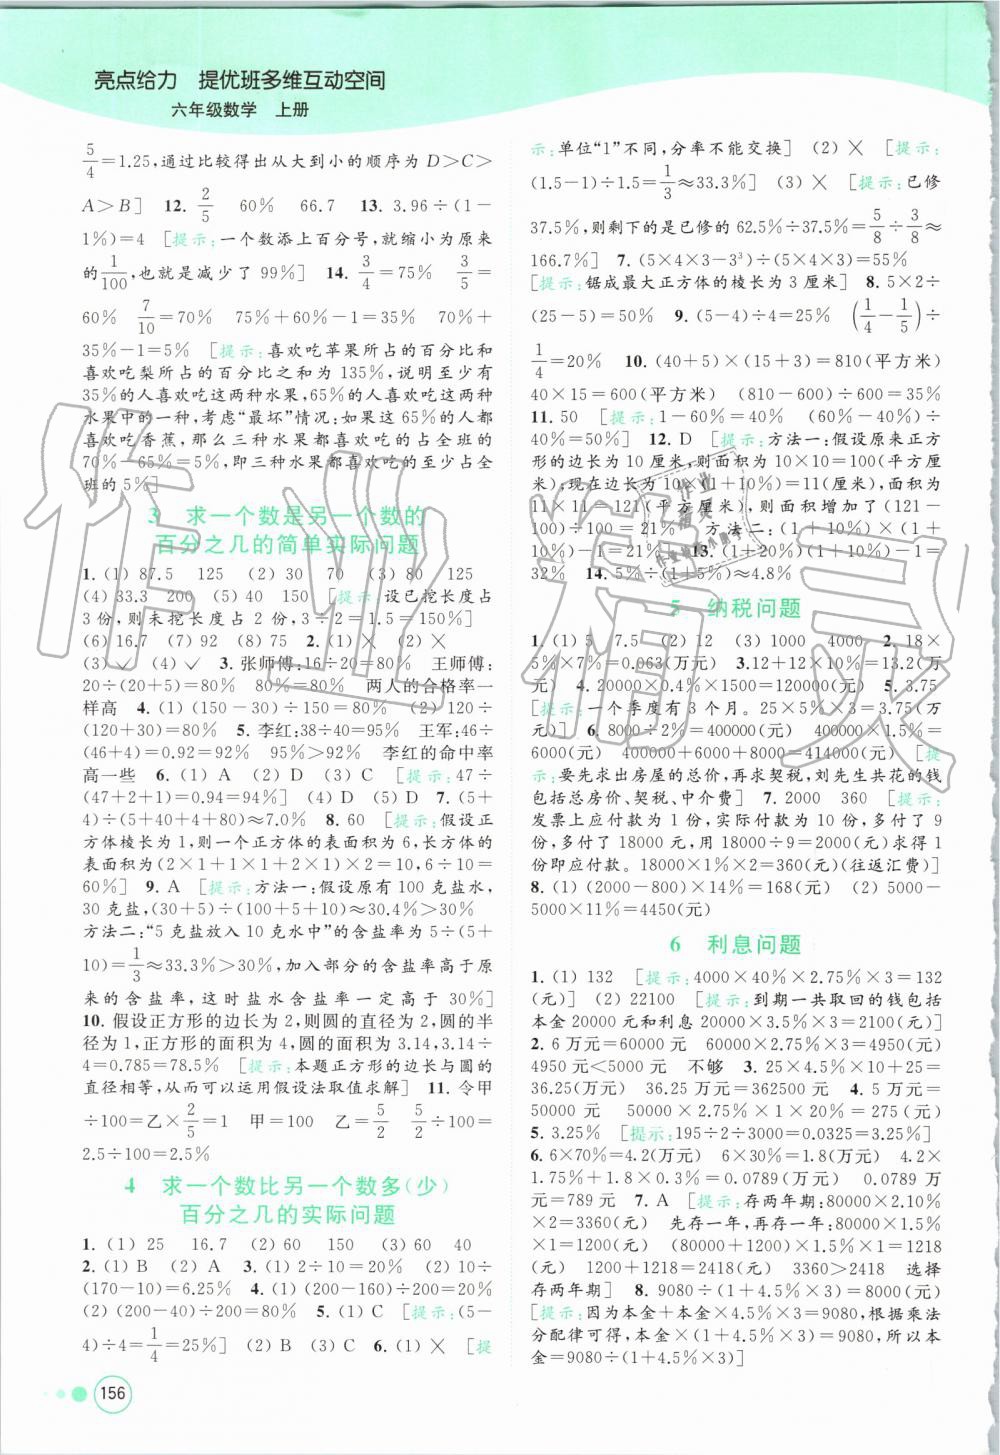 亮点给力 提优班多维互动空间
六年级数学 上册
5/4=1.25,通过比较得出从大到小的顺序为 D>C>
A>B] 12. 2/5 60% 66.7 13. 3.96÷(1-
1%)=4 [提示:一个数添上百分号,就缩小为原来
的1/100,也就是减少了 99%] 14. 3/4=75% 3/5=
60% 7/10=70% 75%+60%=135% 70%+
35%-1=5% [提示:喜欢吃苹果所占的百分比和
喜欢吃梨所占的百分比之和为 135%,说明至少有
35%的人喜欢吃这两种水果,65%的人喜欢吃这两种
水果中的一种,考虑“最坏”情况:如果这 65%的人都
喜欢吃香蕉,那么三种水果都喜欢吃的占全班的
70%-65%=5%,即三种水果都喜欢吃的至少占全
班的 5%]
3 求一个数是另一个数的
百分之几的简单实际问题
1. (1) 87.5 125 (2) 30 70 (3) 80 125
(4) 33.3 200 (5) 40 150 [提示:设已挖长度占
3 份,则未挖长度占 2 份,3÷2=1.5=150%]
(6) 16.7 (7) 92 (8) 75 2. (1) × (2) ×
(3) ✓ (4) ✓ 3. 张师傅:16÷20=80% 王师傅:
20÷(20+5)=80% 80%=80% 两人的合格率一
样高 4. (1) (150-30)÷150=80% (2) 120÷
(120+30)=80% 5. 李红:38÷40=95% 王军:46÷
(46+4)=0.92=92% 95%>92% 李红的命中率
高一些 6. (1) A (2) D (3) C [提示:47÷
(47+2+1)=0.94=94%] (4) D (5) D 7. (5+
4)÷(5+40+4+80)≈7.0% 8. 60 [提示:假设正
方体棱长为 1,则一个正方体的表面积为 6,长方体的
表面积为(2×1+1×1+2×1)×2=10,6÷10=
60%] 9. A [提示:方法一:假设原有 100 克盐水,
30 克盐,(30+5)÷(100+5+10)≈30.4%>30%
方法二:“5 克盐放入 10 克水中”的含盐率为 5÷(5+
10)=1/3≈33.3%>30%,加入部分的含盐率高于原
来的含盐率,这时盐水含盐率一定高于 30%]
10. 假设正方形的边长为 2,则圆的直径为 2,圆的半
径为 1,正方形的面积为 4,圆的面积为 3.14,3.14÷
4=0.785=78.5% [提示:本题正方形的边长与圆的
直径相等,从而可以运用假设法取值求解] 11. 令甲
÷100=乙×2/5=1 甲=100 乙=5/2 5/2÷100=
2.5÷100=2.5%
4 求一个数比另一个数多(少)
百分之几的实际问题
1. (1) 25 16.7 (2) 60 150 (3) 60 40
2. (1) B (2) A 3. (1) 2÷10=20% (2) 10÷
(170-10)=6.25% 4. (1) (200-160)÷200=20%
(2) (200-40)÷200=80% 5. (1) C [提示:(5-
4)÷4=1/4=25%] (2) B (3) C 6. (1) × [提
示:单位“1”不同,分率不能交换] (2) × [提示:
(1.5-1)÷1.5=1/3≈33.3%] (3) × [提示:已修
37.5%,则剩下的是已修的 62.5%÷37.5%=5/8÷3/8≈
166.7%] 7. (5×4×3-3³)÷(5×4×3)=55%
[提示:锯成最大正方体的棱长为 3 厘米] 8. 5×2÷
(25-5)=50% 9. (5-4)÷4=25% (1/4-1/5)÷
1/4=20% 10. (40+5)×(15+3)=810(平方米)
40×15=600(平方米) (810-600)÷600=35%
11. 50 [提示:1-60%=40% (60%-40%)÷
40%=50%] 12. D [提示:方法一:假设原来正方
形的边长为 10 厘米,则面积为 10×10=100(平方厘
米);现在边长为 10×(1+10%)=11(厘米),面积为
11×11=121(平方厘米),则面积增加了(121-
100)÷100=21% 方法二:(1+10%)×(1+
10%)-1=21%] 13. (1+20%)(1+10%)-1=
32% 14. 5%÷(1+5%)≈4.8%
5 纳税问题
1. (1) 5 7.5 (2) 12 (3) 1000 4000 2. 18×
5%×7%=0.063(万元) 3. 12+12×10%=13.2(万
元) 4. 20000×0.4%×1500=120000(元) 5. 3.75
[提示:一个季度有 3 个月。25×5%×3=3.75(万
元)] 6. 8000÷2%=400000(元) 400000×1.5%=
6000(元) 400000+6000+8000=414000(元) [提
示:要先求出房屋的总价,再求契税,刘先生共花的钱
包括总房价、契税、中介费] 7. 2000 360 [提示:
发票上应付款为 1 份,实际付款为 10 份,多付了 9
份,多付了 18000 元,用 18000÷9=2000(元)求得 1
份即应付款。18000×1%×2=360(元)(往返汇费)]
8. (1) (2000-800)×14%=168(元) (2) 5000-
5000×11%=4450(元)
6 利息问题
1. (1) 132 [提示:4000×40%×2.75%×3=132
(元)] (2) 22100 [提示:到期一共取回的钱包括
本金 20000 元和利息 20000×3.5%×3=2100(元)]
2. 6 万元=60000 元 60000×2.75%×3=4950(元)
4950 元<5000 元 不够 3. 25×4.5%×10+25=
36.25(万元) 36.25 万元=362500 元 4. 5 万元=
50000 元 50000×2.75%×1×20%=275(元)
5. 3.25% [提示:195÷2÷3000=0.0325=3.25%]
6. 6×70%=4.2(万元) 6×30%=1.8(万元) 4.2×
1.75%×1+1.8×0.3%×1=0.0789(万元) 0.0789(万
元)=789 元 7. A [提示:存两年期:80000×2.10%
×2=3360(元) 先存一年,再存一年:80000×1.5%
×1=1200(元) (80000+1200)×1.5%×1=1218
(元) 1200+1218=2418(元) 3360>2418 选择
存两年期] 8. 9080÷(1+4.5%×3)=8000(元)
[提示:因为本金+本金×4.5%×3=9080,根据乘法
分配律可得,本金×(1+4.5%×3)=9080,所以本
金=9080÷(1+4.5%×3)]
156
作业精灵